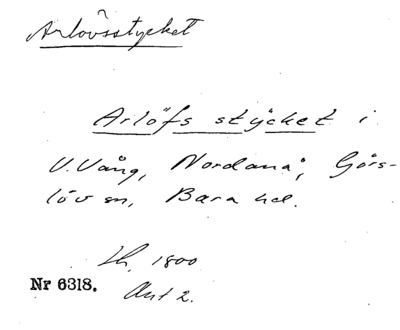 Arlövsstycket
Arlöfs stÿcket i
V. Vång, Nordanå, Görs-
löv sn, Bara hd.
Lh. 1800
Nr 6318. Akt 2.